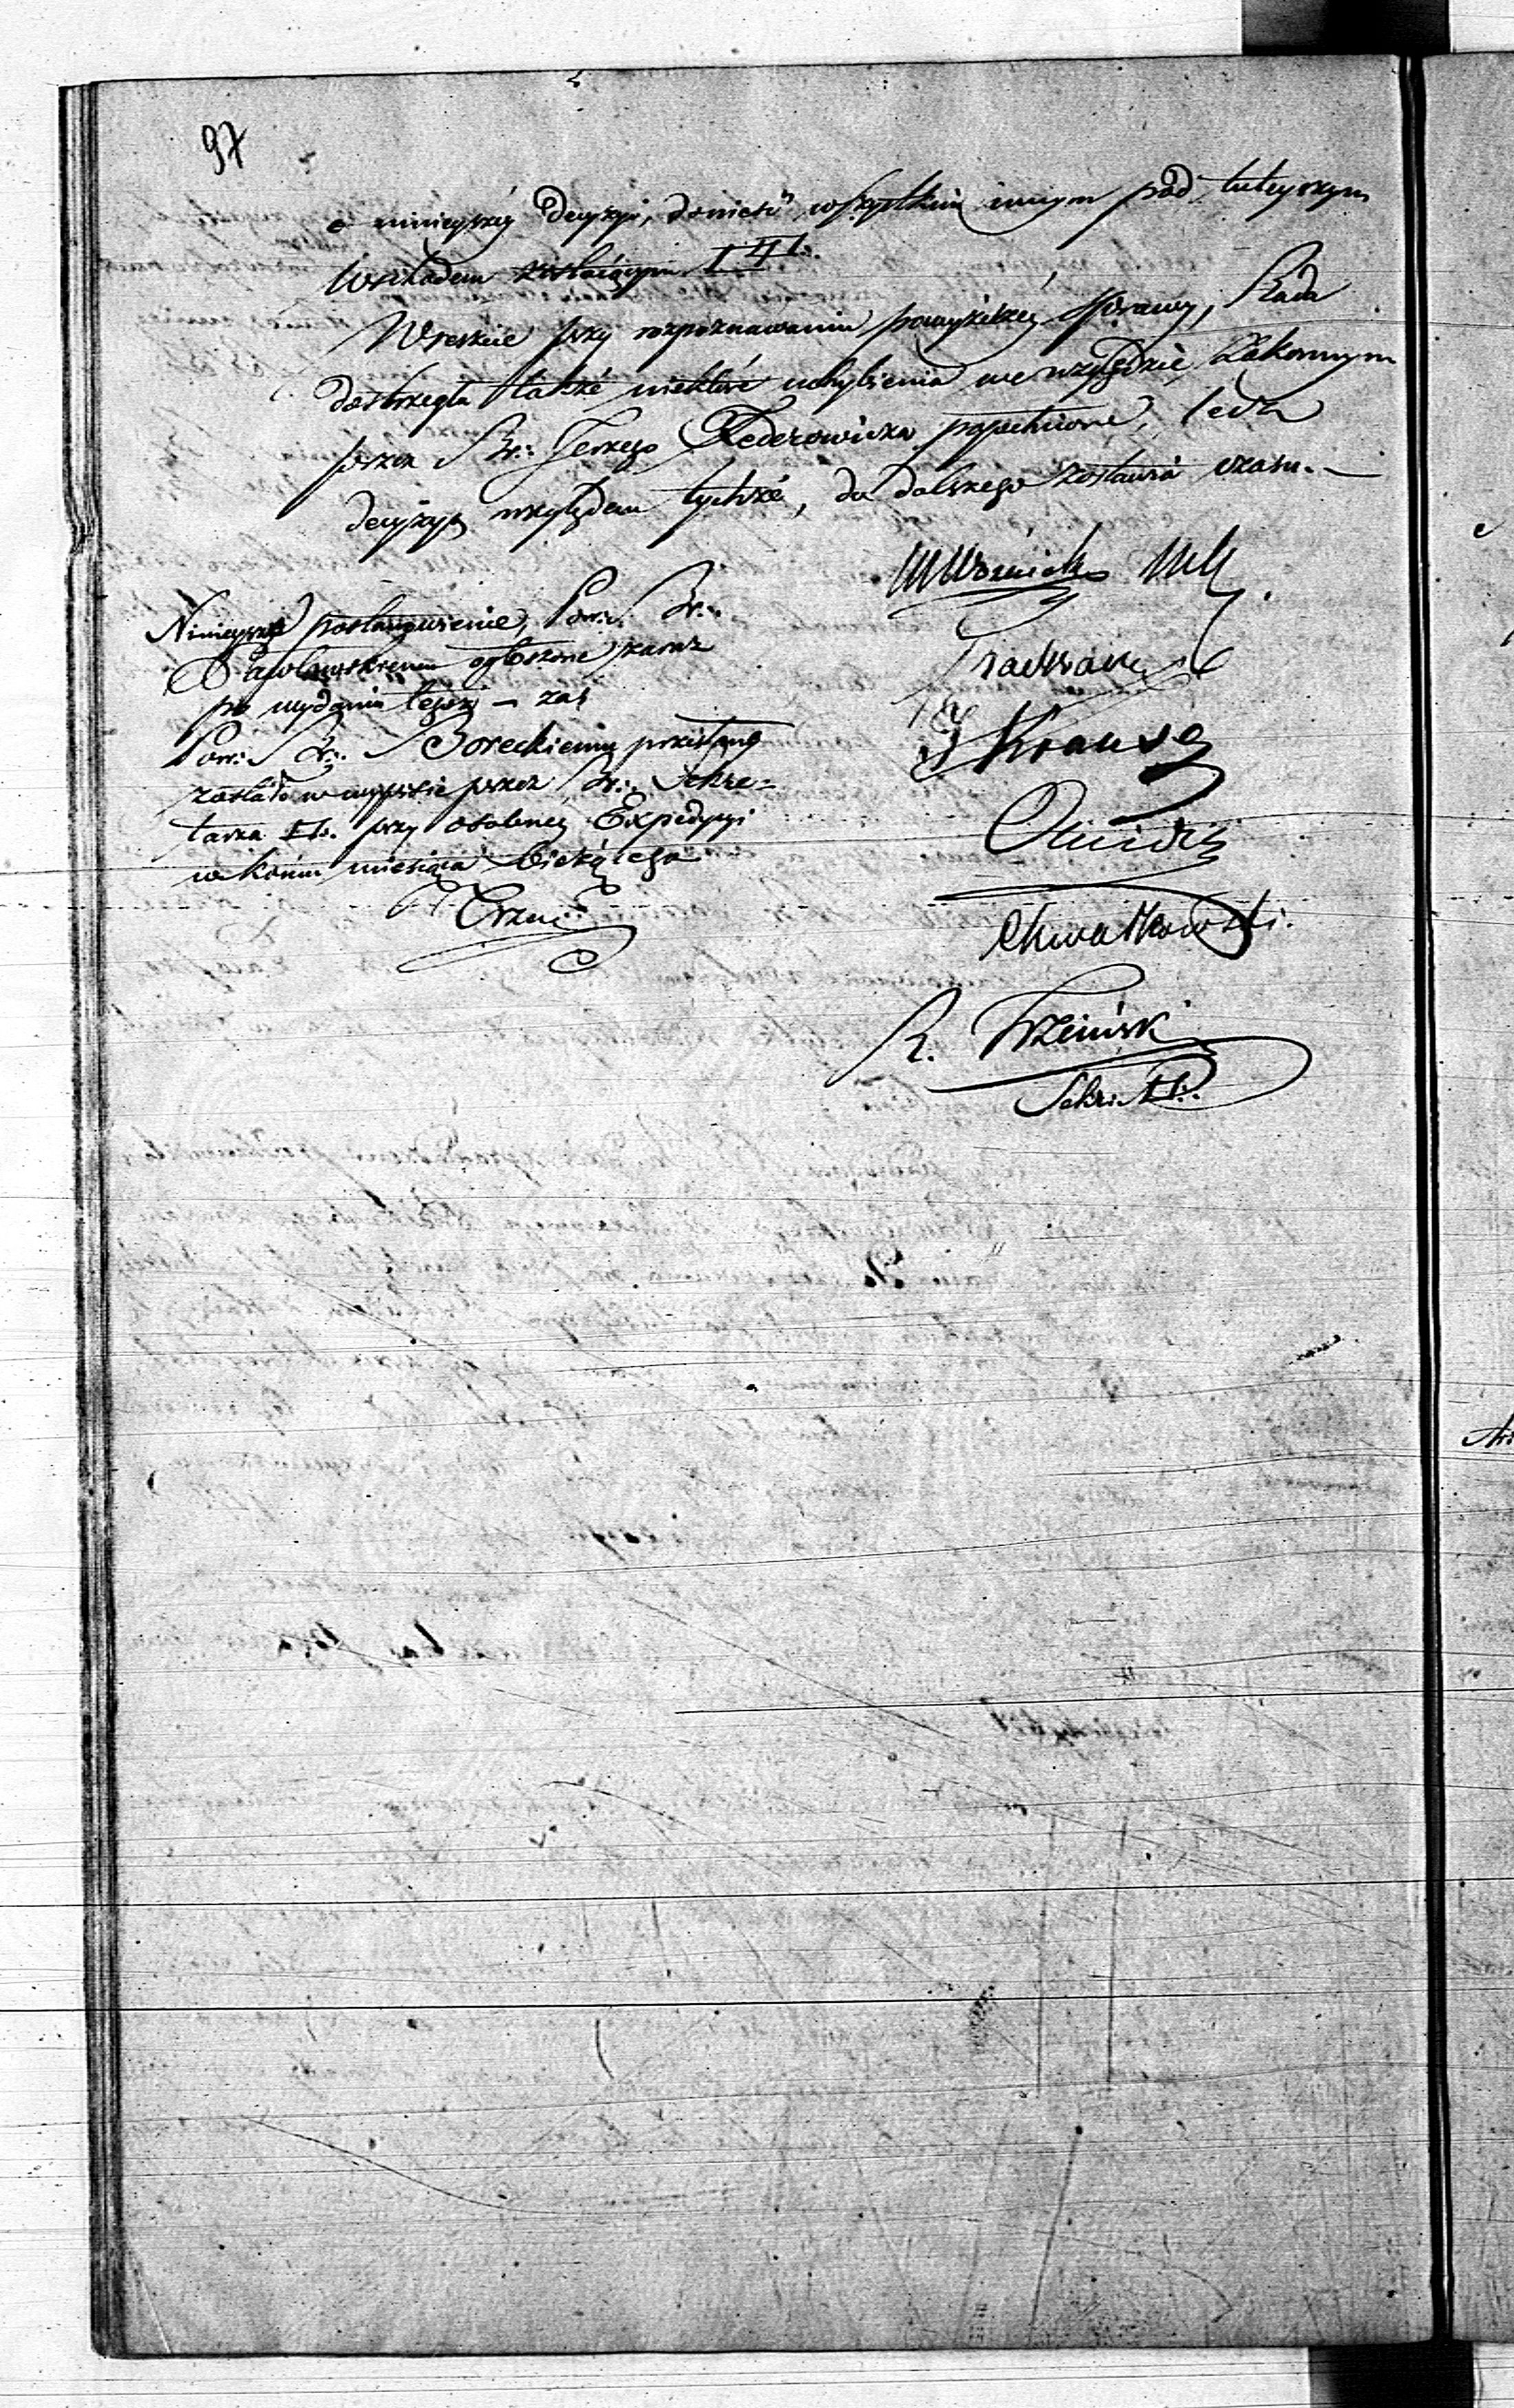 97
o ninieyszéy decyzyi, donieść wszystkim innym pod tuteyszym
Wschodem zostaiącym
Wreszcie przy rozpoznawaniu powyższéy sprawy, Rada
dostrzegła także niektóre uchybienia we względzie Zakonnym
przez Br: Jerzego Federowicza popełnione, lecz
decyzyą względem tychże, do dalszego zostawia czasu.—
Ninieysze postanowienie, Pow: Br:
ogłoszone zaraz
po wydaniu tegoż — zaś
Pow: Br: Boreckiemu przesłane
zostało w wypisie przez Br: Sekre=
tarza przy osobnéy Expedycyi
w końcu miesiąca bieżącego
Woźnicki
J Krause
Chwalkowski.
R. Trzciński
Sekr: